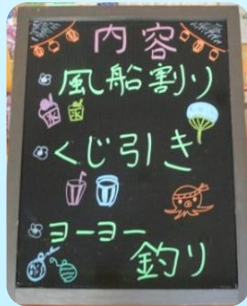 内容
風船割り
くじ引き
ヨーヨー
釣り